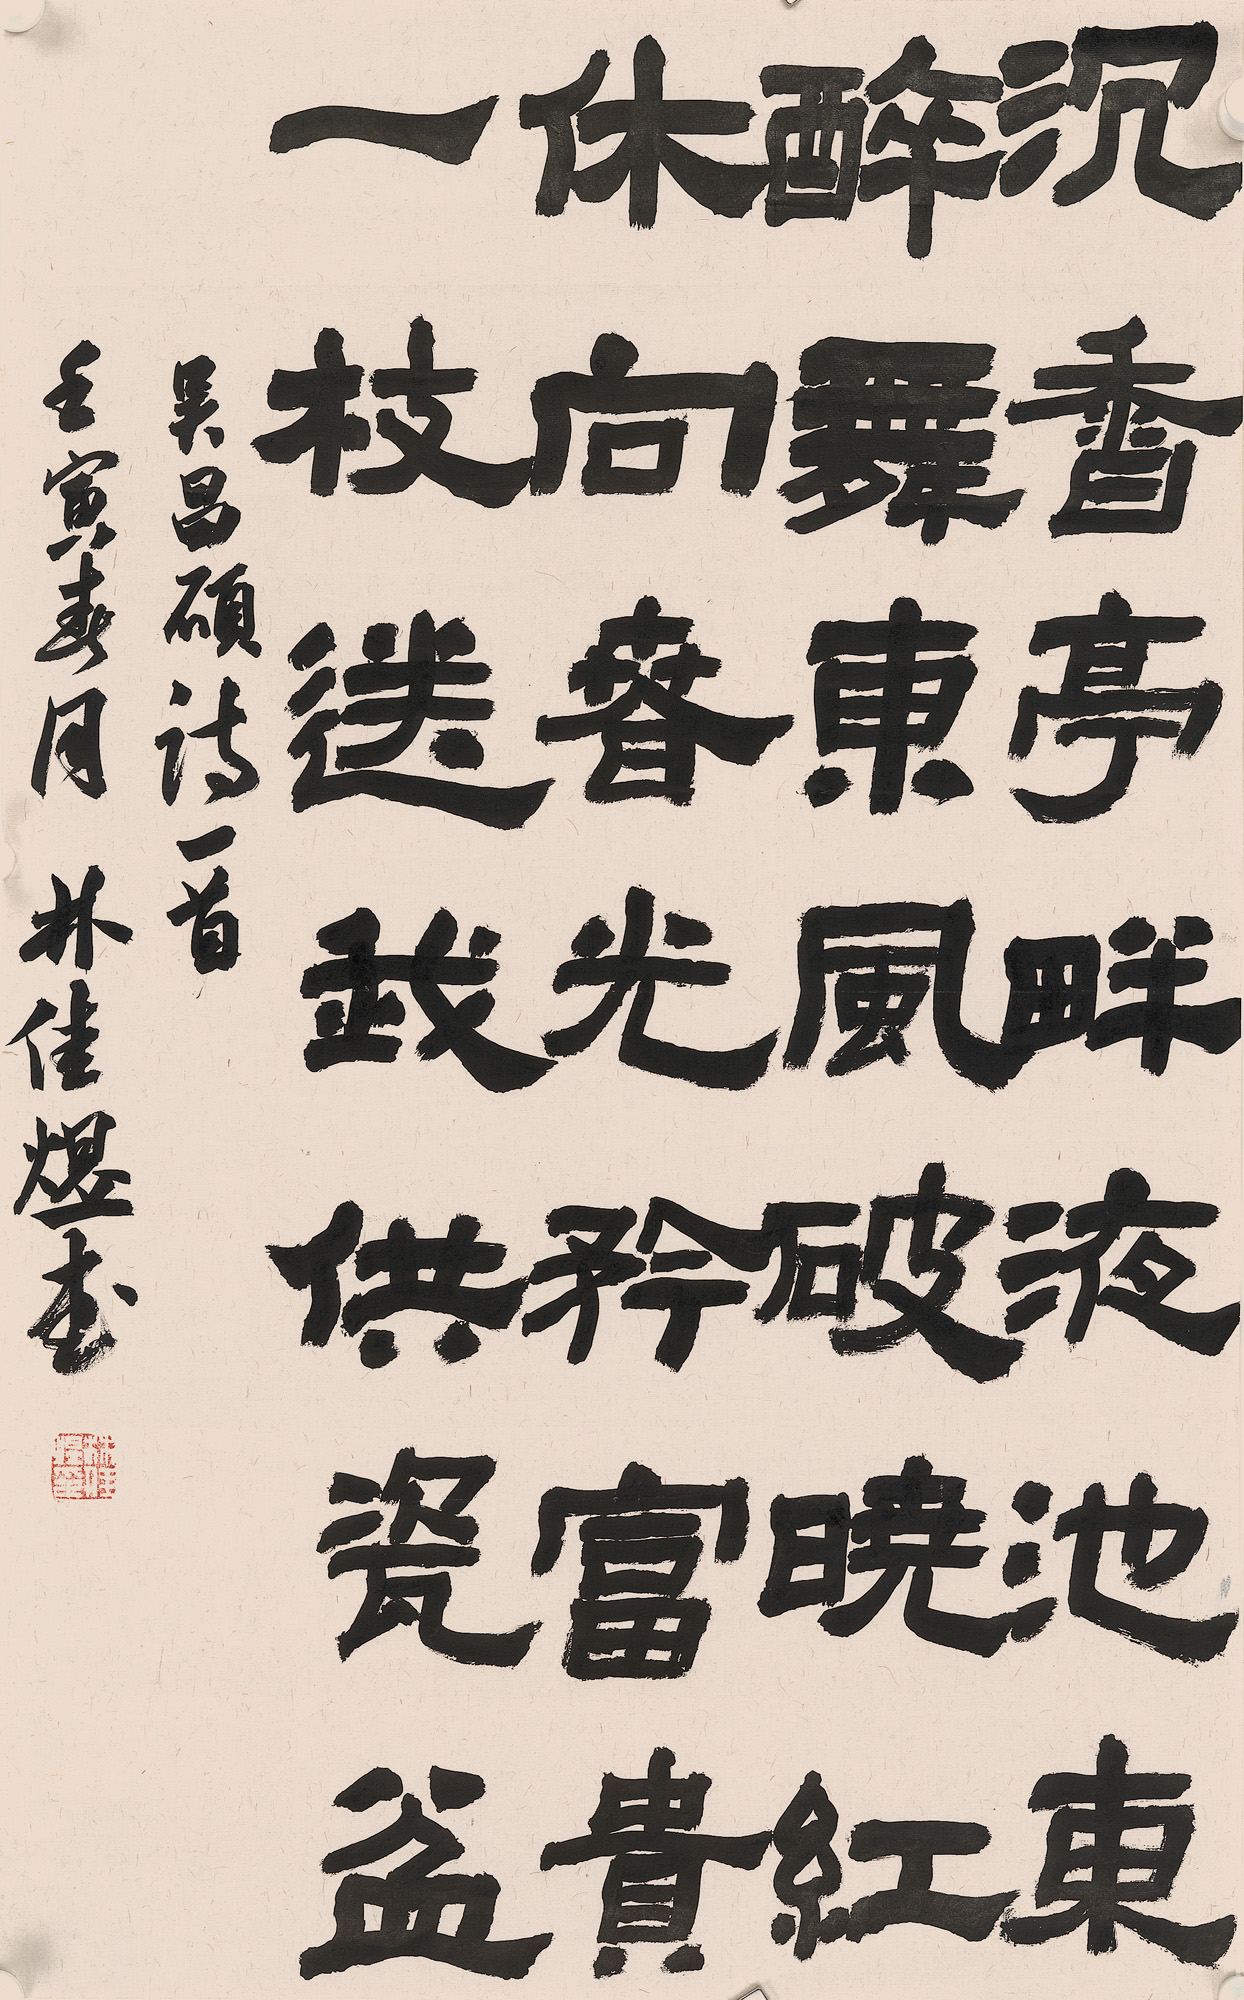 沉香亭畔液池東
醉舞東風破曉紅
休向春光矜富貴
一枝送我供瓷盆
吳昌碩诗一首
壬寅春月 林佳煜书